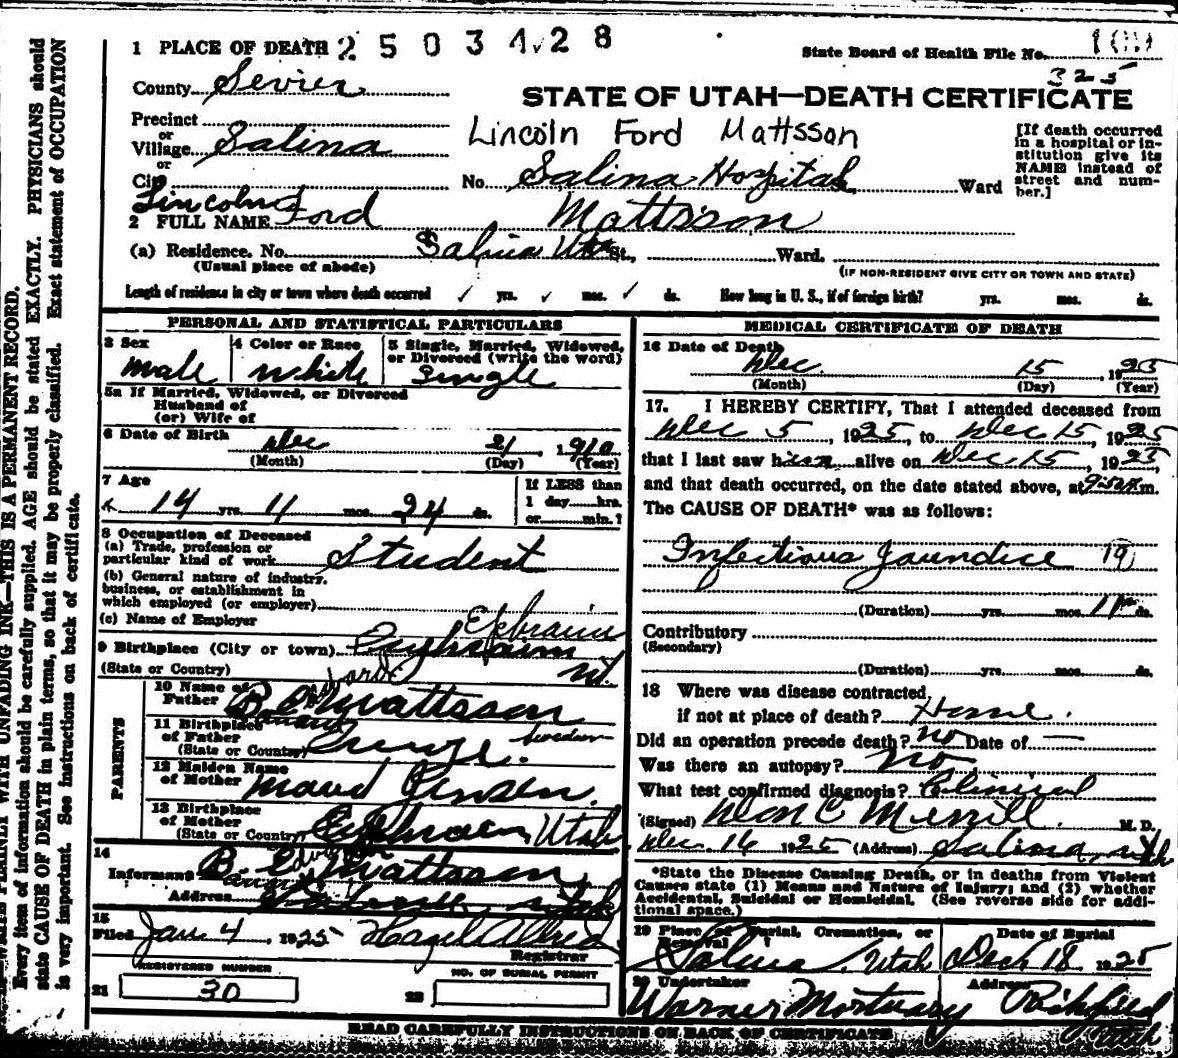 1 PLACE OF DEATH 2 5 0 3 4 2 8
State Board of Health File No. 109
County Sevier
325
STATE OF UTAH—DEATH CERTIFICATE
Precinct
or
Village Salina
or
City
Lincoln Ford Mattsson
No. Salina Hospital Ward
[If death occurred
in a hospital or in-
stitution give its
NAME instead of
street and num-
ber.]
2 FULL NAME Lincoln Ford Mattsson
(a) Residence. No. Salina Utah St., Ward.
(Usual place of abode)
(IF NON-RESIDENT GIVE CITY OR TOWN AND STATE)
Length of residence in city or town where death occurred yrs. mos. ds. How long in U. S., if of foreign birth? yrs. mos. ds.
PERSONAL AND STATISTICAL PARTICULARS
3 Sex
male
4 Color or Race
white
5 Single, Married, Widowed,
or Divorced (write the word)
single
5a If Married, Widowed, or Divorced
Husband of
(or) Wife of
6 Date of Birth Dec 21, 1910
(Month) (Day) (Year)
7 Age
14 yrs. 11 mos. 24 ds.
If LESS than
1 day hrs.
or min.?
8 Occupation of Deceased
(a) Trade, profession or
particular kind of work Student
(b) General nature of industry,
business, or establishment in
which employed (or employer)
(c) Name of Employer
Ephraim
9 Birthplace (City or town) Ephraim
(State or Country) Ut.
PARENTS
10 Name of
Father B. E. Mattsson
11 Birthplace
of Father
(State or Country) Sweden
12 Maiden Name
of Mother Maud Jensen
13 Birthplace
of Mother
(State or Country) Ephraim, Utah
14
Informant B. E. Mattsson
Address Utah
15
Filed Jan 4, 1925 Hazel Allred
Registrar
REGISTERED NUMBER
21 30
NO. OF BURIAL PERMIT
22
MEDICAL CERTIFICATE OF DEATH
16 Date of Death
Dec 15, 1925
(Month) (Day) (Year)
17. I HEREBY CERTIFY, That I attended deceased from
Dec 5, 1925, to Dec 15, 1925
that I last saw him alive on Dec 15, 1925,
and that death occurred, on the date stated above, at m.
The CAUSE OF DEATH* was as follows:
Infectious Jaundice 19
(Duration) yrs. mos. 11 ds.
Contributory
(Secondary)
(Duration) yrs. mos. ds.
18 Where was disease contracted,
if not at place of death? Home.
Did an operation precede death? no Date of —
Was there an autopsy? No
What test confirmed diagnosis? Clinical
(Signed) Dean C Merrill. M. D.
Dec 16 1925 (Address) Salina, Utah
*State the Disease Causing Death, or in deaths from Violent
Causes state (1) Means and Nature of Injury; and (2) whether
Accidental, Suicidal or Homicidal. (See reverse side for addi-
tional space.)
19 Place of Burial, Cremation, or
Removal
Salina, Utah
Date of Burial
Dec 18 1925
20 Undertaker
Warner Mortuary
Address
Richfield
Utah
READ CAREFULLY INSTRUCTIONS ON BACK OF CERTIFICATE
WRITE PLAINLY WITH UNFADING INK—THIS IS A PERMANENT RECORD.
Every item of information should be carefully supplied. AGE should be stated EXACTLY. PHYSICIANS should
state CAUSE OF DEATH in plain terms, so that it may be properly classified. Exact statement of OCCUPATION
is very important. See instructions on back of certificate.